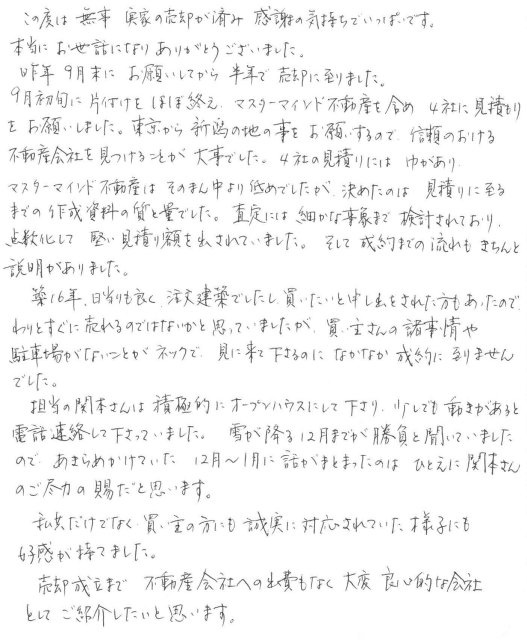 この度は 無事 実家の売却が済み 感謝の気持ちでいっぱいです。
本当に お世話になり ありがとうございました。
昨年 9月末に お願いしてから 半年で 売却に至りました。
9月初旬に 片付けを ほぼ終え、マスターマインド不動産を含め 4社に見積もり
を お願いしました。東京から 新潟の地の事を お願いするので、信頼のおける
不動産会社を見つけることが 大事でした。4社の見積りには 巾があり、
マスターマインド不動産は そのまん中より低めでしたが、決めたのは 見積りに至る
までの 作成資料の質と量でした。査定には 細かな事象まで 検討されており、
点数化して 堅い見積り額を出されていました。そして 成約までの流れも きちんと
説明がありました。
築16年、日当りも良く、注文建築でしたし、買いたいと申し出をされた方もあったので、
わりとすぐに売れるのではないかと思っていましたが、買い主さんの諸事情や
駐車場がないことが ネックで、見に来て下さるのに なかなか成約に至りません
でした。
担当の関本さんは 積極的にオープンハウスにして下さり、少しでも動きがあると
電話連絡して下さっていました。 雪が降る12月までが勝負と聞いていました
ので、あきらめかけていた 12月〜1月に話がまとまったのは ひとえに関本さん
のご尽力の賜だと思います。
私共だけでなく、買い主の方にも 誠実に対応されていた様子にも
好感が持てました。
売却成立まで 不動産会社への出費もなく 大変 良心的な会社
として ご紹介したいと思います。